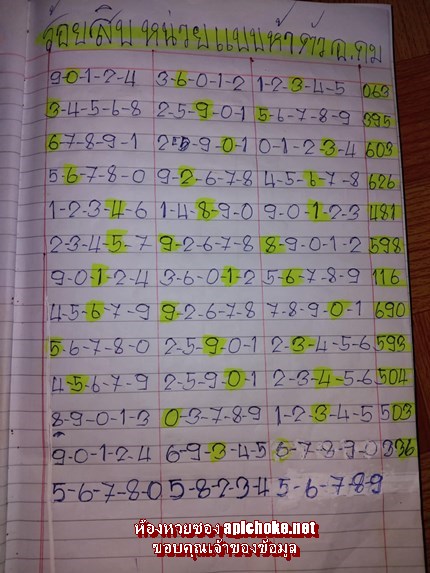 ร้อยสิบหน่วยแบบห้าตัว อ.ถม
9-0-1-2-4 3-6-0-1-2 1-2-3-4-5 063
3-4-5-6-8 2-5-9-0-1 5-6-7-8-9 395
6-7-8-9-1 2-5-9-0-1 0-1-2-3-4 603
5-6-7-8-0 9-2-6-7-8 4-5-6-7-8 626
1-2-3-4-6 1-4-8-9-0 9-0-1-2-3 481
2-3-4-5-7 9-2-6-7-8 8-9-0-1-2 598
9-0-1-2-4 3-6-0-1-2 5-6-7-8-9 116
4-5-6-7-9 9-2-6-7-8 7-8-9-0-1 690
5-6-7-8-0 2-5-9-0-1 2-3-4-5-6 593
4-5-6-7-9 2-5-9-0-1 2-3-4-5-6 504
8-9-0-1-3 0-3-7-8-9 1-2-3-4-5 503
9-0-1-2-4 6-9-3-4-5 6-7-8-9-0 836
5-6-7-8-0 5-8-2-3-4 5-6-7-8-9
ห้องหวยของ apichoke.net
ขอบคุณเจ้าของข้อมูล